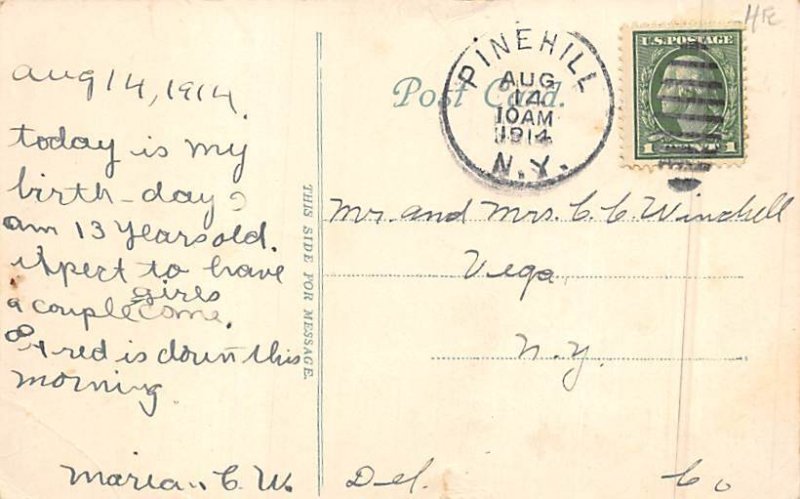 Aug 14, 1914.
today is my
birth-day
am 13 years old.
expect to have
girls
a couple come.
Fred is down this
morning.
Marian C. W.
THIS SIDE FOR MESSAGE.
Post Card.
PINEHILL
AUG
14
10AM
1914
N.Y.
U.S. POSTAGE
1
Mr. and Mrs. C. C. Winchell
Vega,
N.Y.
Del. Co